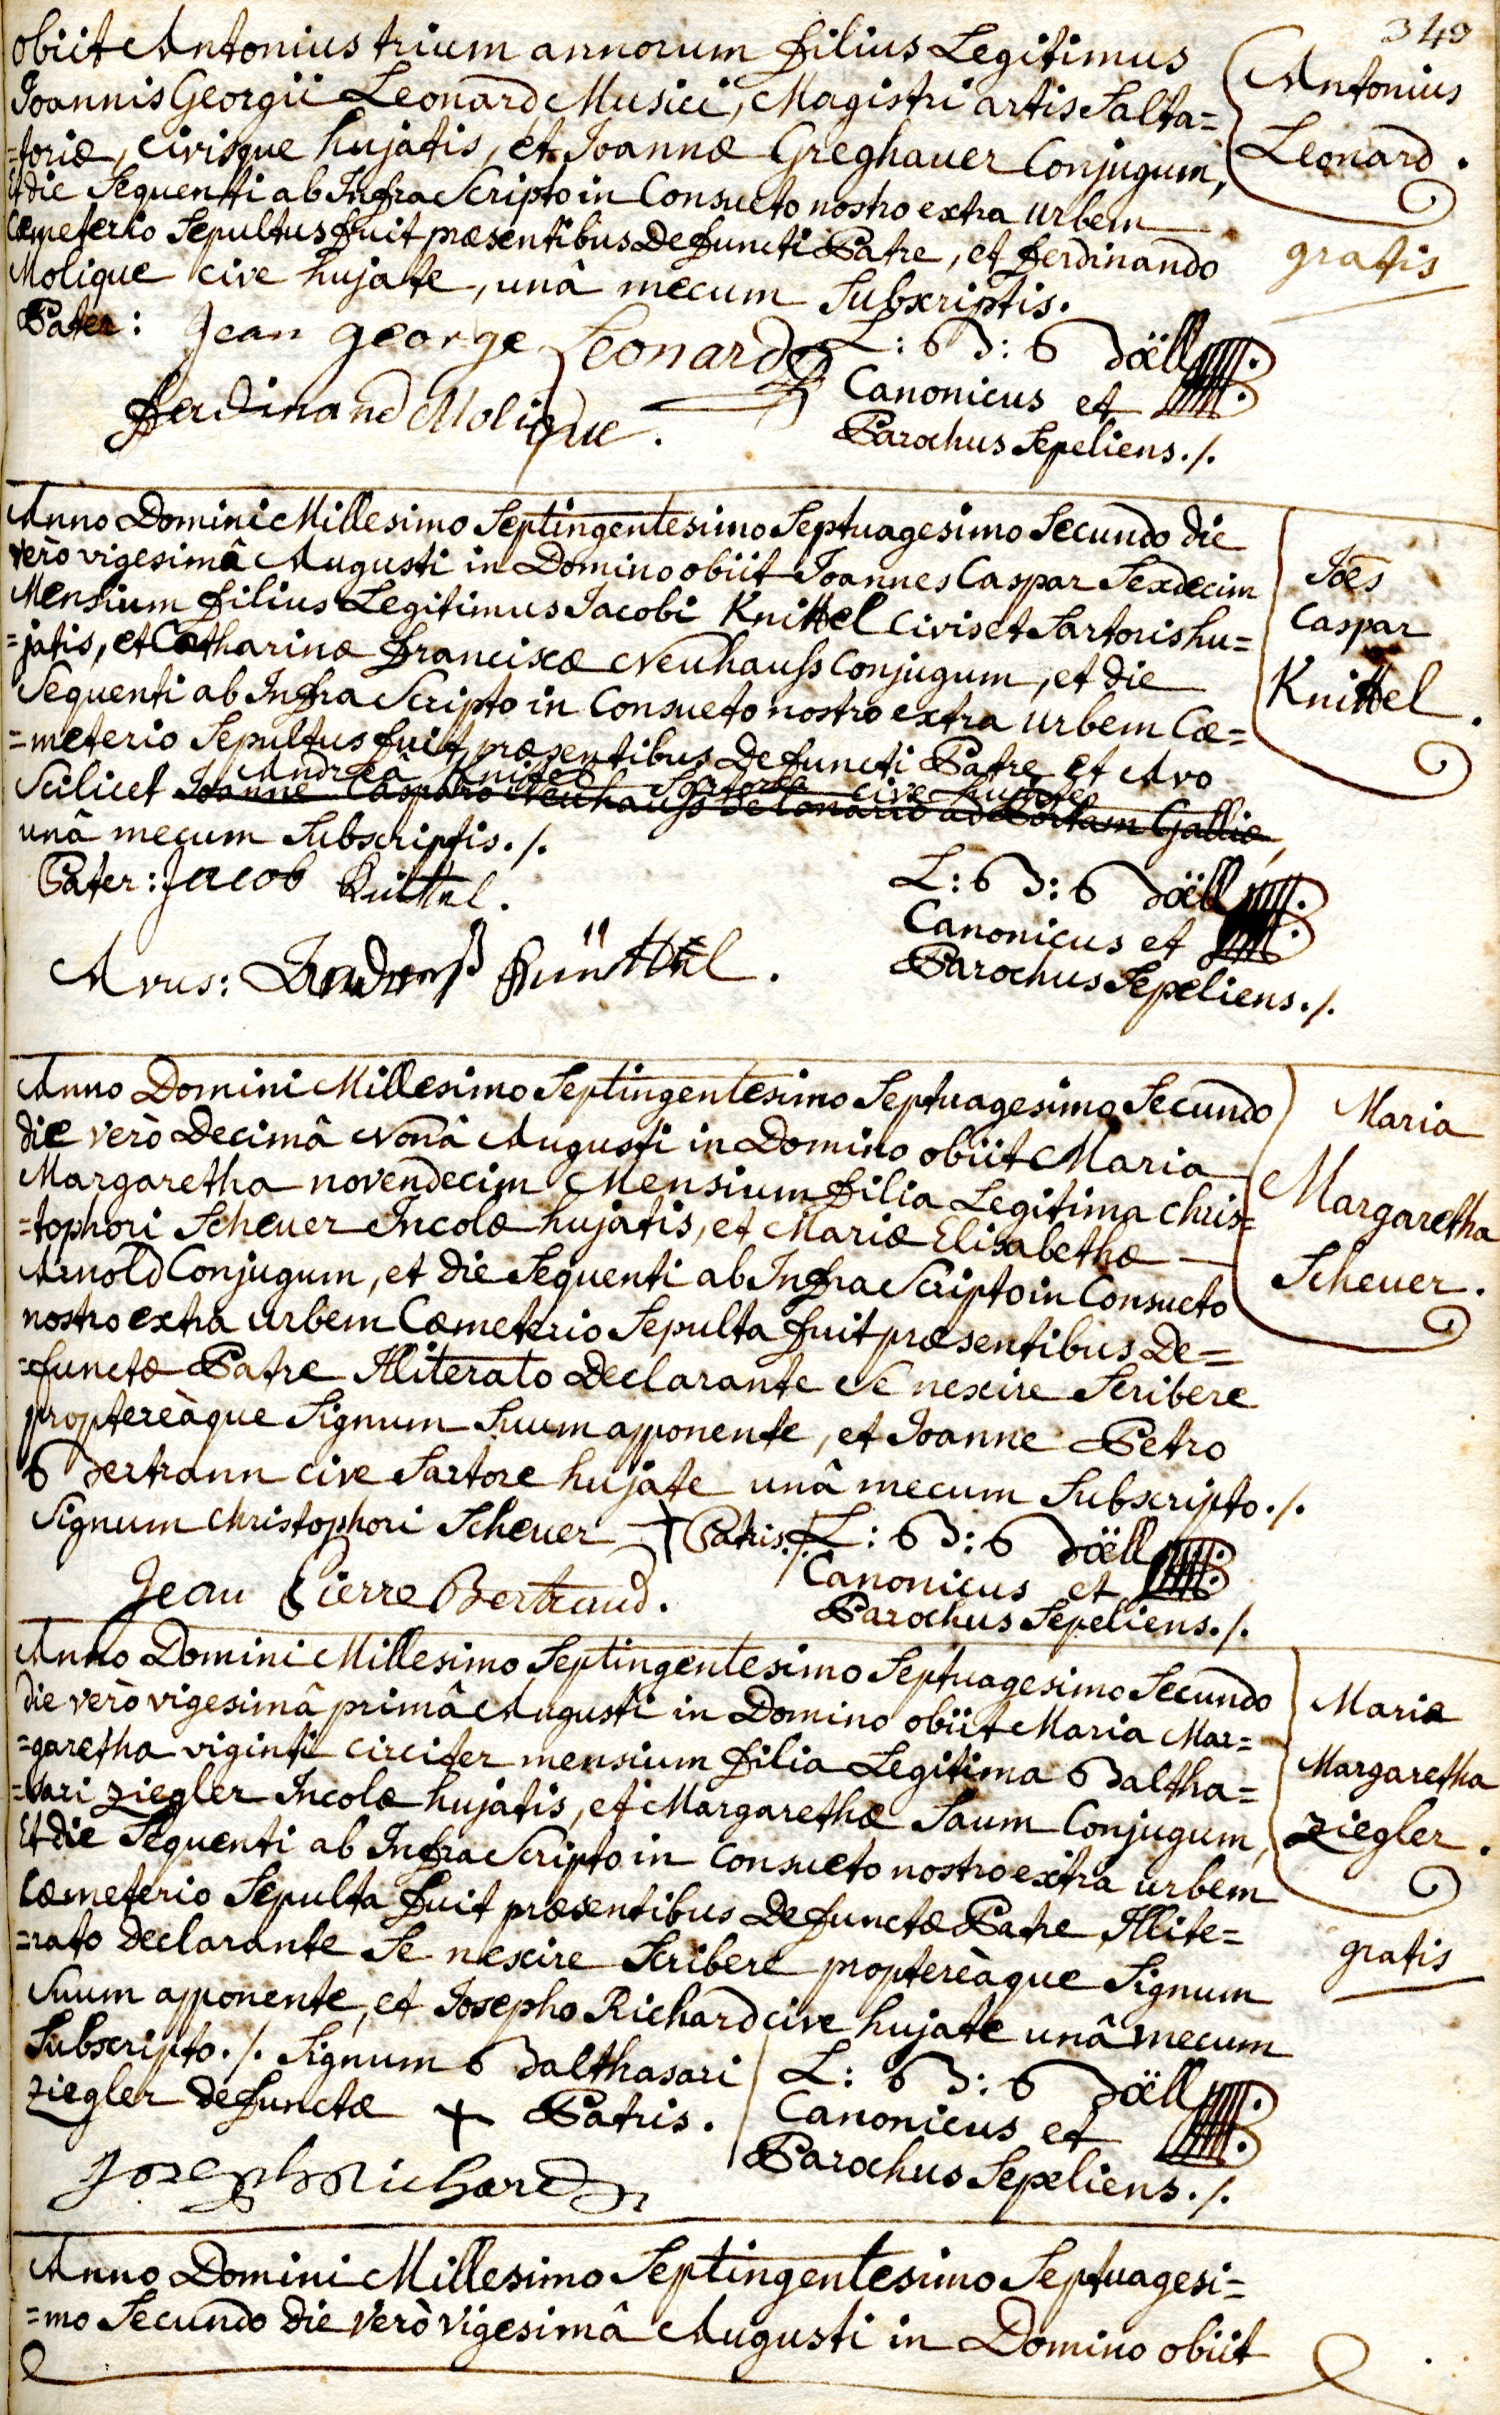 349
obiit Antonius trium annorum filius Legitimus
Joannis Georgii Leonard Musici, Magistri artis Salta=
=toriæ, civisque hujatis, et Joannæ Greghauer Conjugum,
Et die Sequenti ab Infra Scripto in Consueto nostro extra urbem
Cæmeterio Sepultus fuit præsentibus Defuncti Patre, et ferdinando
Molique cive hujate, unâ mecum Subscriptis.
Antonius
Leonard.
gratis
Pater: Jean george Leonard
ferdinand Molique.
L: B: Böell
Canonicus et
Parochus Sepeliens ./.
Anno Domini Millesimo Septingentesimo Septuagesimo Secundo die
verò vigesimâ Augusti in Domino obiit Joannes Caspar Sexdecim
Mensium filius Legitimus Jacobi Knittel Civis et Sartoris hu=
=jatis, et Catharinæ franciscæ Neuhauss Conjugum, et die
Sequenti ab Infra Scripto in Consueto nostro extra urbem Cæ=
=meterio Sepultus fuit, præsentibus Defuncti Patre et Avo
Andreâ Knittel Sartore cive hujate
Scilicet Joanne Casparo Neuhauss Telonario ad Portam Galliæ,
unâ mecum Subscriptis ./.
Joës
Caspar
Knittel.
Pater: Jacob Knittel.
Avus: Andreß Knüttel.
L: B: Böell
Canonicus et
Parochus Sepeliens ./.
Anno Domini Millesimo Septingentesimo Septuagesimo Secundo
die verò Decimâ Nonâ Augusti in Domino obiit Maria
Margaretha novendecim Mensium filia Legitima Chris=
=tophori Scheuer Incolæ hujatis, et Mariæ Elisabethæ
Arnold Conjugum, et die Sequenti ab Infra Scripto in Consueto
nostro extra urbem Cæmeterio Sepulta fuit præsentibus De=
=functæ Patre Illiterato Declarante Se nescire Scribere
proptereàque Signum Suum apponente, et Joanne Petro
Bertrann cive Sartore hujate unâ mecum Subscripto ./.
Maria
Margaretha
Scheuer.
Signum Christophori Scheuer + Patris ./.
Jean Pierre Bertrand.
L: B: Böell
Canonicus et
Parochus Sepeliens ./.
Anno Domini Millesimo Septingentesimo Septuagesimo Secundo
die verò vigesimâ primâ Augusti in Domino obiit Maria Mar=
=garetha viginti circiter mensium filia Legitima Baltha=
=sari Ziegler Incolæ hujatis, et Margarethæ Saum Conjugum,
Et die Sequenti ab Infra Scripto in Consueto nostro extra urbem
Cæmeterio Sepulta fuit præsentibus Defunctæ Patre Illite=
=rato Declarante Se nescire Scribere proptereàque Signum
Suum apponente, et Josepho Richard cive hujate unâ mecum
Subscripto ./. Signum Balthasari
Ziegler defunctæ + Patris.
Maria
Margaretha
Ziegler.
gratis
Joseph Richard
L: B: Böell
Canonicus et
Parochus Sepeliens ./.
Anno Domini Millesimo Septingentesimo Septuagesi=
=mo Secundo die verò vigesimâ Augusti in Domino obiit